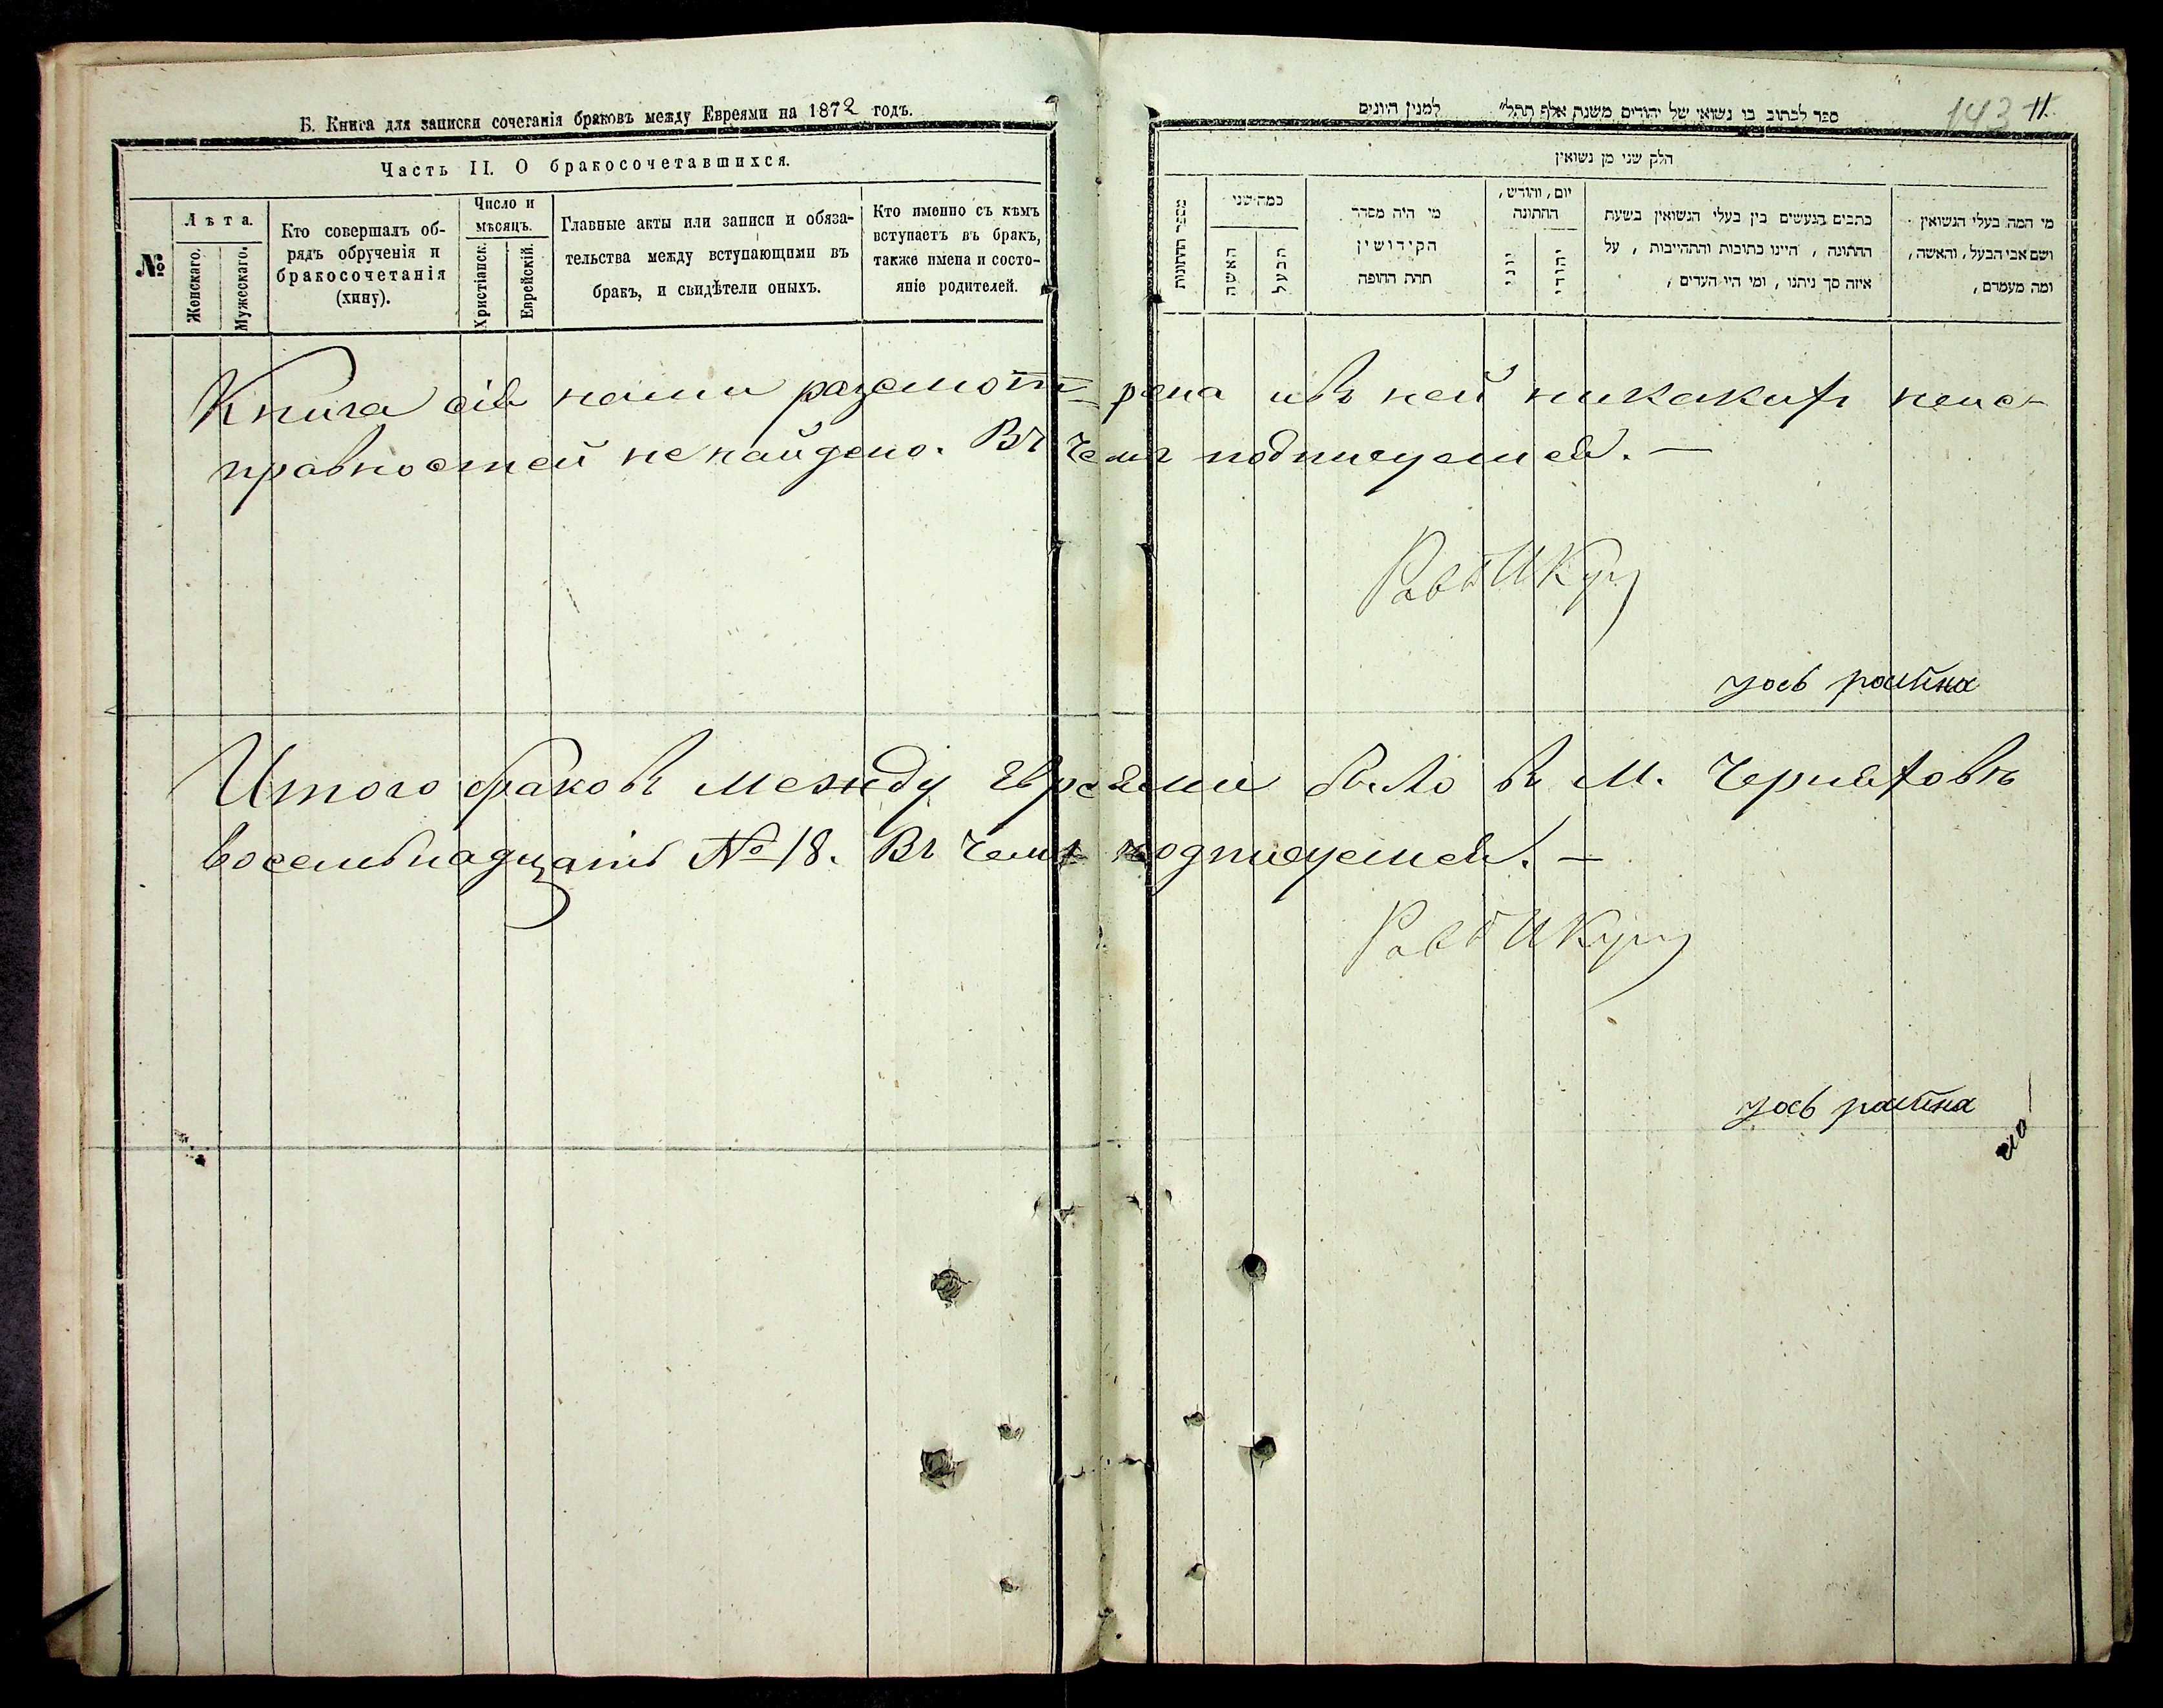 Б. Книга для записки сочетанія браковъ между Евреями на 1872 годъ.
Часть II. О бракосочетавшихся.
№
Лѣта.
Женскаго.
Мужескаго.
Кто совершалъ об-
рядъ обрученія и
бракосочетанія
(хипу).
Число и
мѣсяцъ.
Христіанск.
Еврейскій.
Главные акты или записи и обяза-
тельства между вступающими въ
бракъ, и свидѣтели оныхъ.
Кто именно съ кѣмъ
вступаетъ въ бракъ,
также имена и состо-
яніе родителей.
ספר לכתוב בו נשואי של יהודים משנת אלף תתל״ למנין היונים
143 11.
חלק שני מן נשואין
מספר החתונות
כמה שני
האשה
הבעל
מי היה מסדר
הקידושין
תחת החופה
יום, וחודש,
החתונה
יוני
יהודי
כתבים הנעשים בין בעלי הנשואין בשעת
החתונה, היינו כתובות והתחייבות, על
איזה סך ניתנו, ומי היו העדים,
מי המה בעלי הנשואין
ושם אבי הבעל, והאשה,
ומה מעמדם,
Книга сія нами разсмотрена и въ ней никакихъ неис-
правностей не найдено. Въ чемъ подписуемся. —
Итого браковъ между Евреями было въ М. Черняховѣ
восемьнадцать № 18. Въ чемъ подписуемся. —